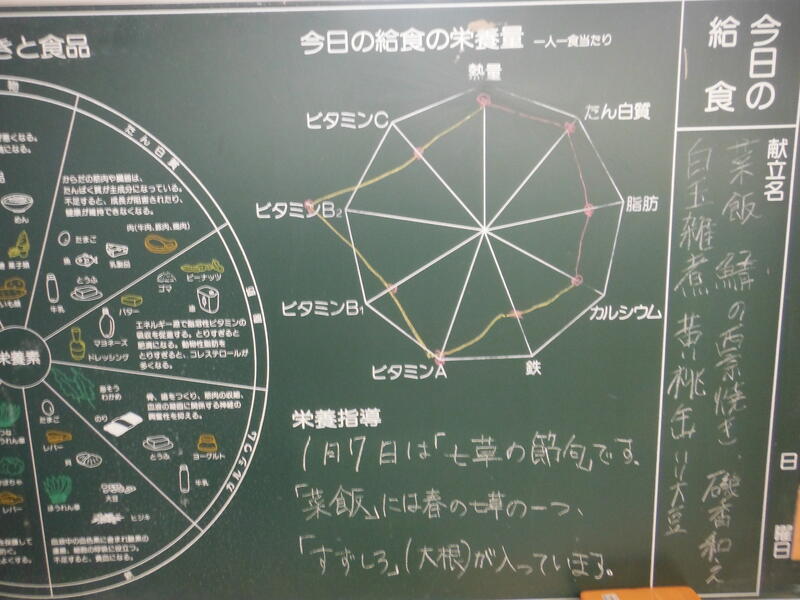 今日の給食
献立名
菜飯 鯖の西京焼き 磯香和え
白玉雑煮 黄桃缶 いり大豆
日
曜日
今日の給食の栄養量 一人一食当たり
熱量
たん白質
脂肪
カルシウム
鉄
ビタミンA
ビタミンB₁
ビタミンB₂
ビタミンC
栄養指導
1月7日は「七草の節句」です。
「菜飯」には春の七草の一つ、
「すずしろ」(大根)が入っています。
きと食品
たん白質
からだの筋肉や臓器は、
たんぱく質が主成分になっている。
不足すると、成長が阻害されたり、
健康が維持できなくなる。
肉(牛肉、豚肉、鶏肉)
たまご
魚
乳製品
牛乳
とうふ
めん
菓子類
いも類
脂肪
ゴマ
ピーナッツ
バター
マヨネーズ
ドレッシング
エネルギー源で脂溶性ビタミンの
吸収を促進する。とりすぎると
肥満になる。動物性脂肪を
とりすぎると、コレステロールが
多くなる。
栄養素
カルシウム
骨、歯をつくり、筋肉の収縮、
血液の凝固に関係する神経の
興奮性を抑える。
わかめ
のり
とうふ
ヨーグルト
牛乳
たまご
レバー
貝
大豆
ヒジキ
ほうれん草
レバー
血液中の血色素に含まれ酸素の
運搬、細胞の呼吸に役立つ。
不足すると、貧血になる。
鉄